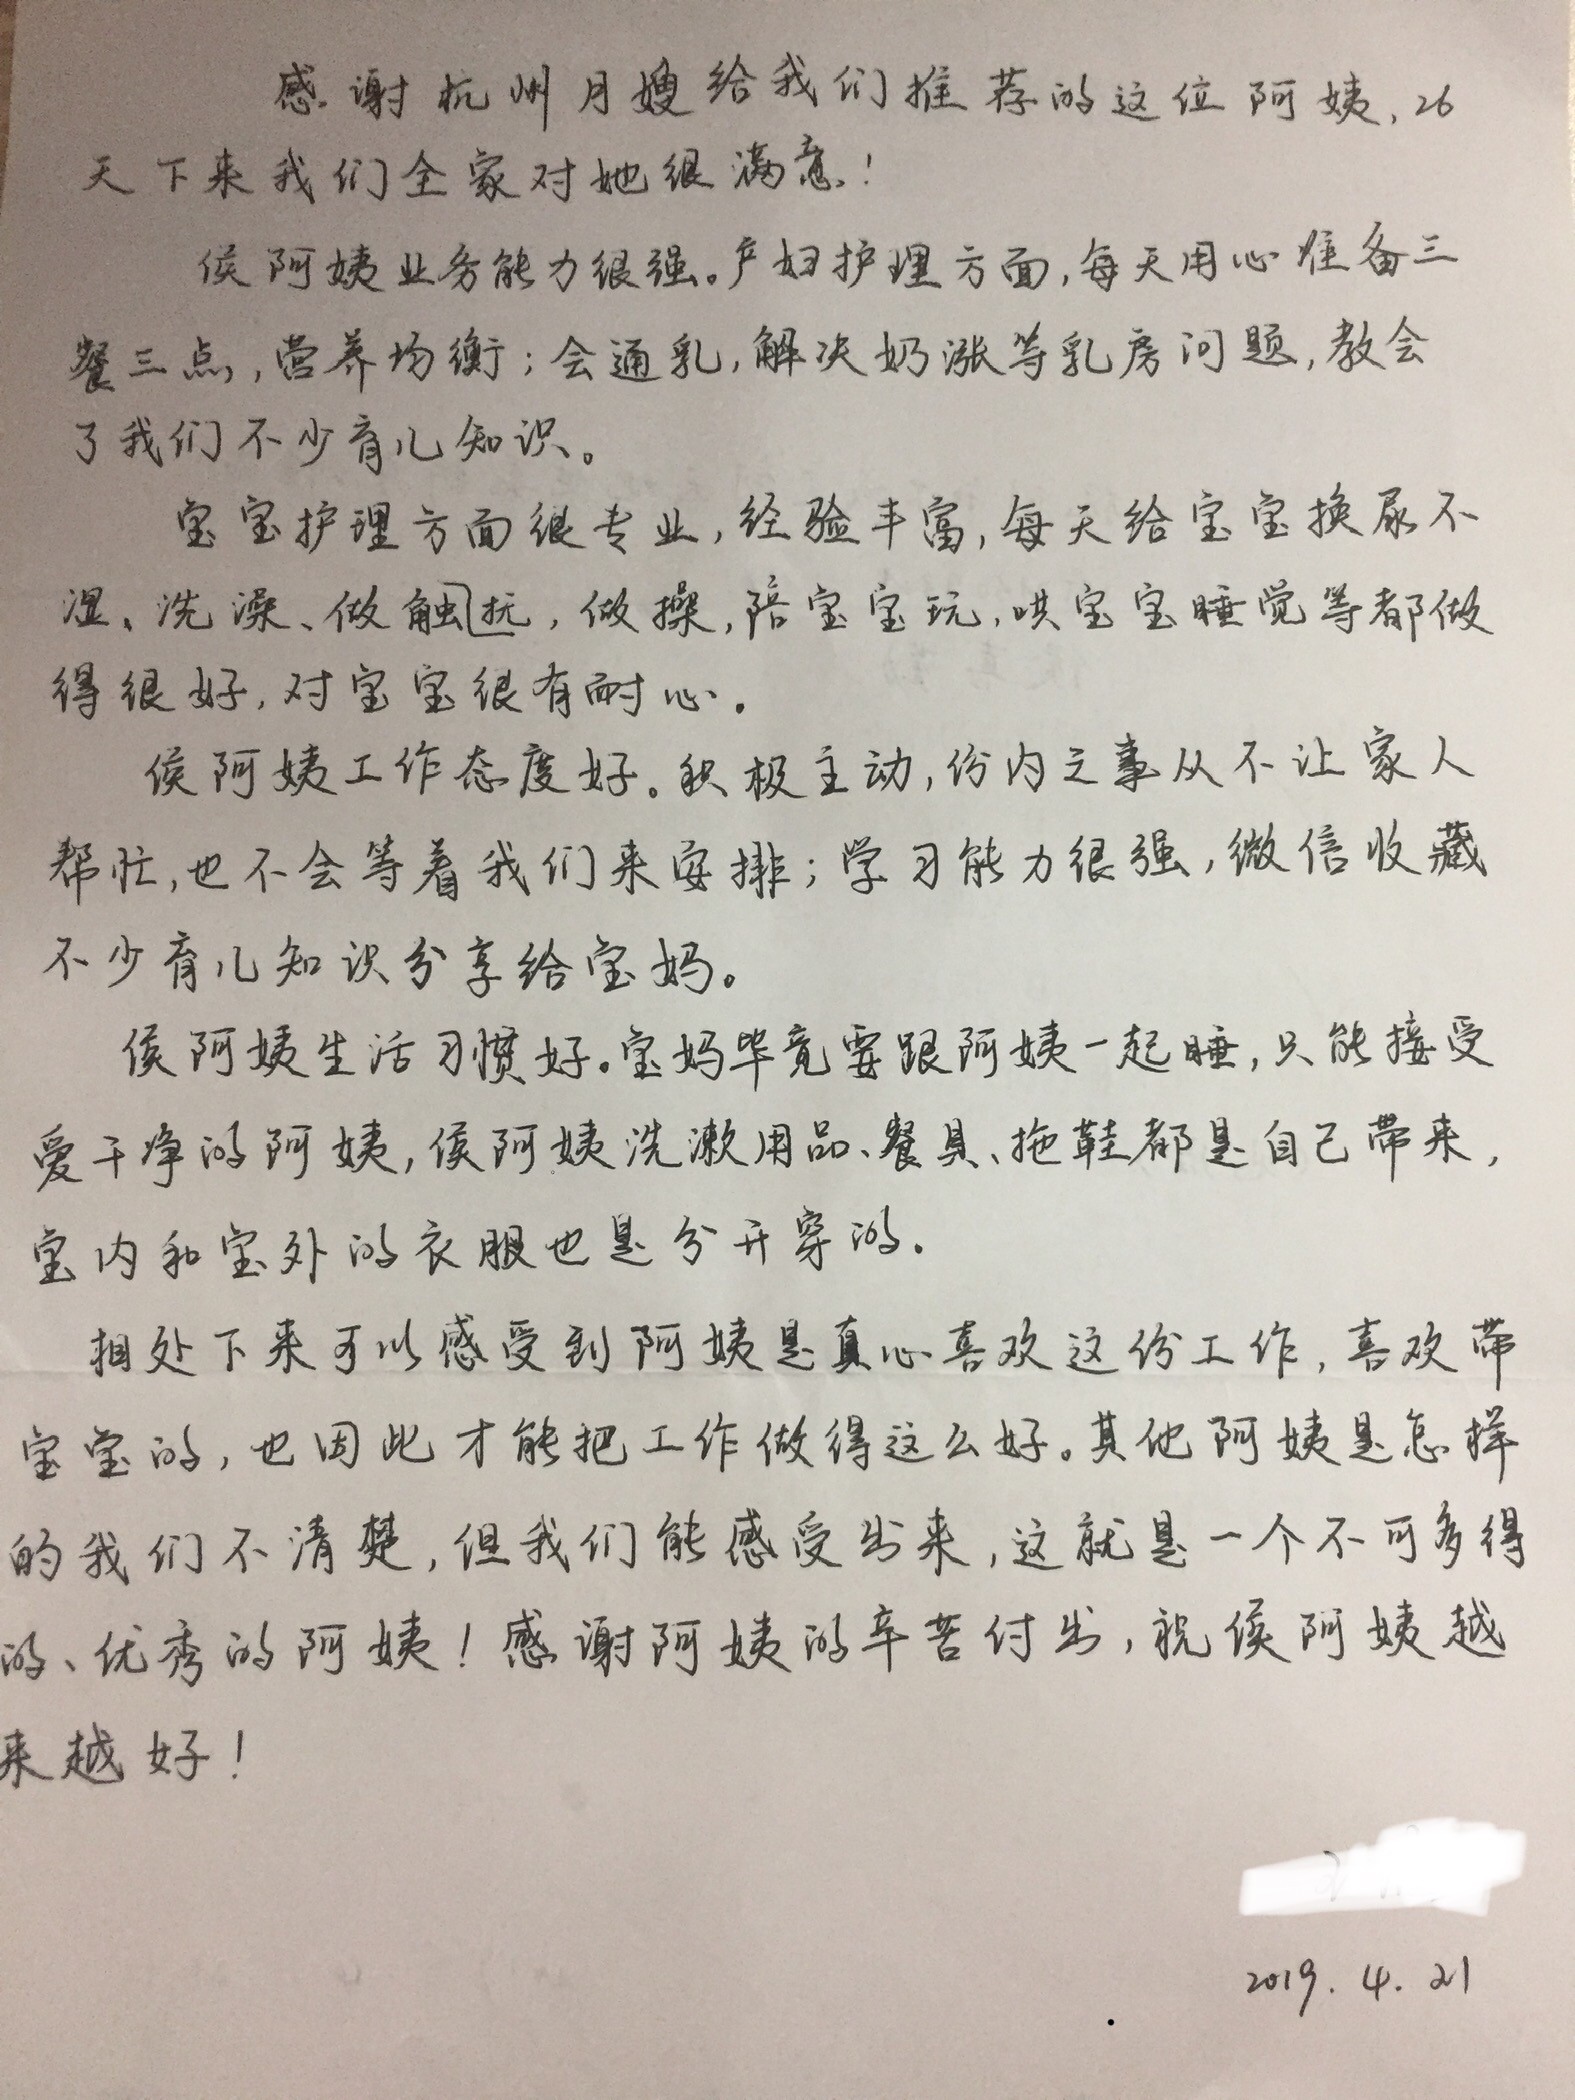 感谢杭州月嫂给我们推荐的这位阿姨,26
天下来我们全家对她很满意!
侯阿姨业务能力很强。产妇护理方面,每天用心准备三
餐三点,营养均衡;会通乳,解决奶涨等乳房问题,教会
了我们不少育儿知识。
宝宝护理方面很专业,经验丰富,每天给宝宝换尿不
湿、洗澡、做触抚,做操,陪宝宝玩,哄宝宝睡觉等都做
得很好,对宝宝很有耐心.
侯阿姨工作态度好。积极主动,份内之事从不让家人
帮忙,也不会等着我们来安排;学习能力很强,微信收藏
不少育儿知识分享给宝妈。
侯阿姨生活习惯好。宝妈毕竟要跟阿姨一起睡,只能接受
爱干净的阿姨,侯阿姨洗漱用品、餐具、拖鞋都是自己带来,
室内和室外的衣服也是分开穿的。
相处下来可以感受到阿姨是真心喜欢这份工作,喜欢带
宝宝的,也因此才能把工作做得这么好。其他阿姨是怎样
的我们不清楚,但我们能感受出来,这就是一个不可多得
的、优秀的阿姨!感谢阿姨的辛苦付出,祝侯阿姨越
来越好!
2019.4.21